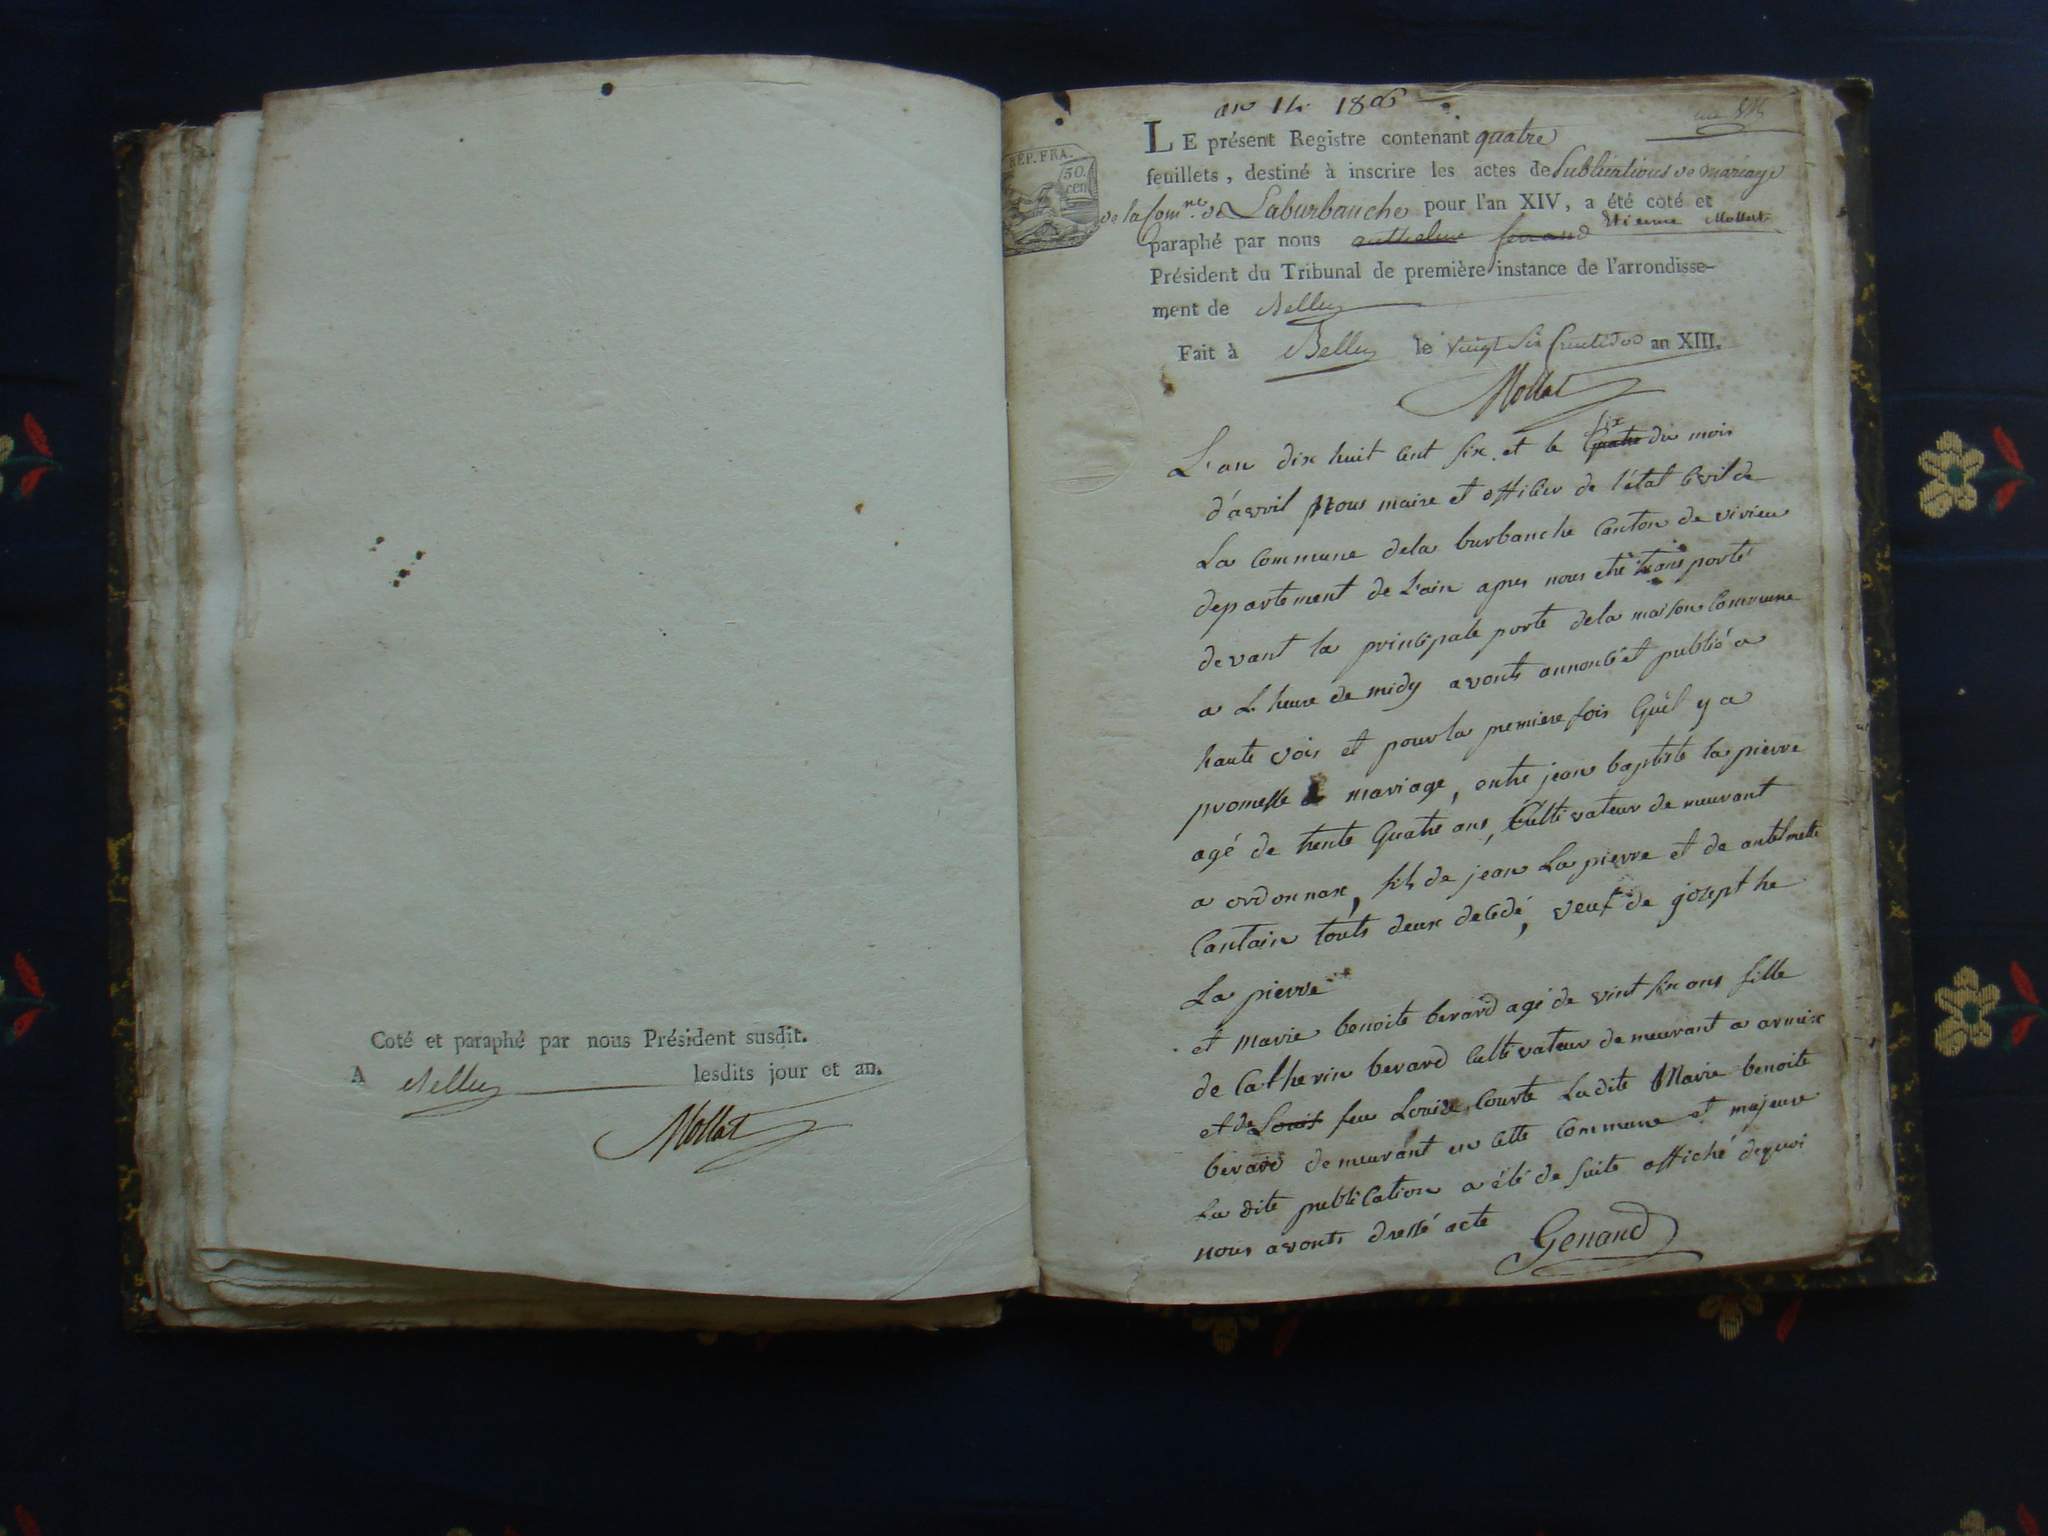 Coté et paraphé par nous Président susdit.
A Belley lesdits jour et an.
Mollat
an 14 1806
RÉP. FRA.
50. cen
LE présent Registre contenant quatre
feuillets, destiné à inscrire les actes de Publications de mariage
de la Comne. de Laburbanche pour l'an XIV, a été coté et
paraphé par nous anthelme ferrand Etienne Mollat
Président du Tribunal de première instance de l'arrondisse-
ment de Belley
Fait à Belley le vingt six fructidor an XIII.
Mollat
L'an dix huit cent six et le quatre six du mois
d'avril Nous maire et officier de l'état civil de
La commune dela burbanche canton de virieu
departement de L'ain apres nous etre transporté
devant la principale porte dela maison commune
a L'heure de midy avonts annoncé et publié a
haute voix et pour la premiere fois Quil y a
promesse de mariage, entre jean baptiste la pierre
agé de trente Quatre ans, Cultivateur demeurant
a ordonnax, fils de jean La pierre et de antelmette
Cantain touts deux decedé, veuf de josepthe
La pierre
et Marie benoite berard agé de vint six ans fille
de Catherin berard Cultivateur demeurant a armix
et de Louis feu Louise Courte Ladite Marie benoite
berard demeurant en cette commune et majeure
La dite publication a été de suite affiché dequoi
nous avonts dressé acte Genand